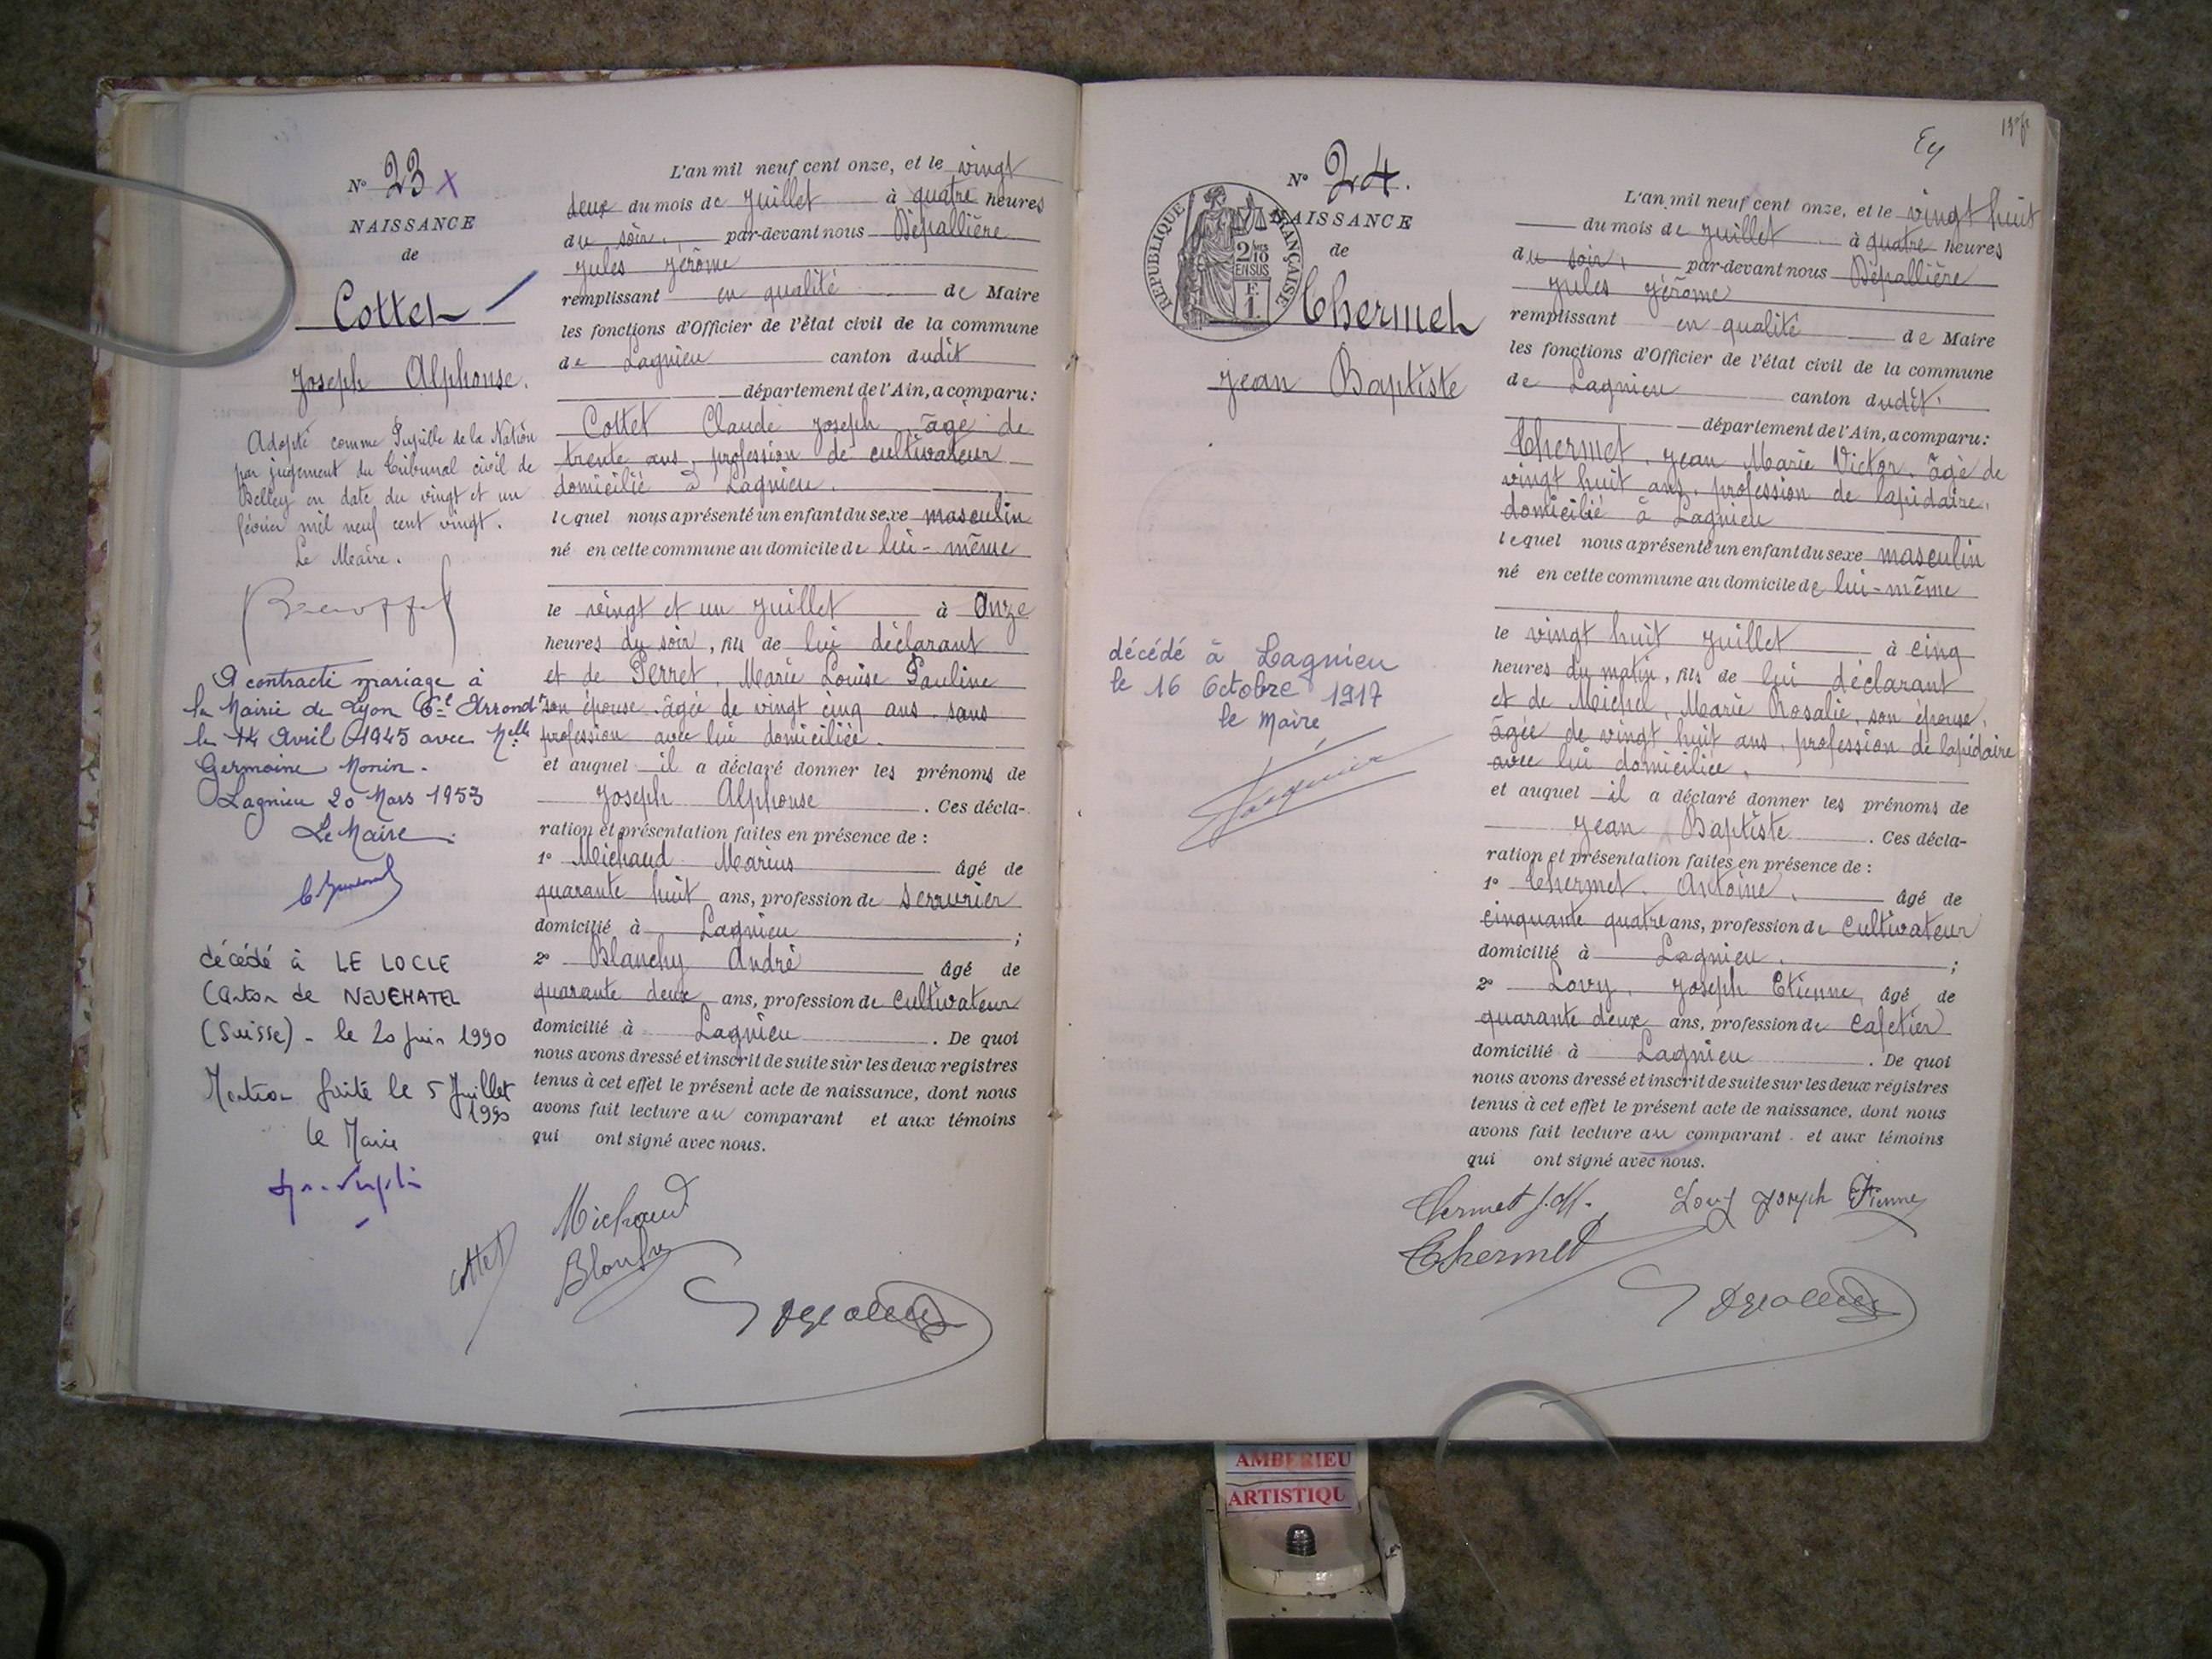 N° 23 X
NAISSANCE
de
Cottet
Joseph Alphonse.
Adopté comme Pupille de la Nation
par jugement du Tribunal civil de
Belley en date du vingt et un
février mil neuf cent vingt.
Le Maire.
A contracté mariage à
la Mairie de Lyon 6e Arrondt
le 14 Avril 1945 avec Melle
Germaine Monin.
Lagnieu 20 Mars 1953
Le Maire.
décédé à LE LOCLE
Canton de NEUCHATEL
(Suisse) - le 20 juin 1990
Mention faite le 5 Juillet
1990
Le Maire
L'an mil neuf cent onze, et le vingt
deux du mois de Juillet à quatre heures
du soir, par-devant nous Dépallière
Jules Jérôme
remplissant en qualité de Maire
les fonctions d'Officier de l'état civil de la commune
de Lagnieu canton dudit
département de l'Ain, a comparu:
Cottet Claude Joseph, âgé de
trente ans, profession de cultivateur
domicilié à Lagnieu.
lequel nous a présenté un enfant du sexe masculin
né en cette commune au domicile de lui-même
le vingt et un Juillet à onze
heures du soir, fils de lui déclarant
et de Perret, Marie Louise Pauline
son épouse âgée de vingt cinq ans sans
profession avec lui domiciliée.
et auquel il a déclaré donner les prénoms de
Joseph Alphonse. Ces décla-
ration et présentation faites en présence de :
1° Michaud Marius âgé de
quarante huit ans, profession de serrurier
domicilié à Lagnieu ;
2° Blanchy André âgé de
quarante deux ans, profession de cultivateur
domicilié à Lagnieu. De quoi
nous avons dressé et inscrit de suite sur les deux registres
tenus à cet effet le présent acte de naissance, dont nous
avons fait lecture au comparant et aux témoins
qui ont signé avec nous.
Michaud
Cottet
N° 24.
NAISSANCE
de
REPUBLIQUE FRANÇAISE
2/10 EN SUS
1 F.
Thermet
Jean Baptiste
décédé à Lagnieu
le 16 Octobre 1917
le Maire
L'an mil neuf cent onze, et le vingt huit
du mois de Juillet à quatre heures
du soir, par-devant nous Dépallière
Jules Jérôme
remplissant en qualité de Maire
les fonctions d'Officier de l'état civil de la commune
de Lagnieu canton dudit.
département de l'Ain, a comparu:
Thermet, Jean Marie Victor, âgé de
vingt huit ans, profession de lapidaire,
domicilié à Lagnieu
lequel nous a présenté un enfant du sexe masculin
né en cette commune au domicile de lui-même
le vingt huit Juillet à cinq
heures du matin, fils de lui déclarant
et de Michel, Marie Rosalie, son épouse,
âgée de vingt huit ans, profession de lapidaire
avec lui domiciliée.
et auquel il a déclaré donner les prénoms de
Jean Baptiste. Ces décla-
ration et présentation faites en présence de :
1° Thermet, Antoine, âgé de
cinquante quatre ans, profession de cultivateur
domicilié à Lagnieu. ;
2° Lovy, Joseph Etienne, âgé de
quarante deux ans, profession de cafetier
domicilié à Lagnieu. De quoi
nous avons dressé et inscrit de suite sur les deux registres
tenus à cet effet le présent acte de naissance, dont nous
avons fait lecture au comparant et aux témoins
qui ont signé avec nous.
Thermet Lovy Joseph Etienne
Thermet
AMBERIEU
ARTISTIQU